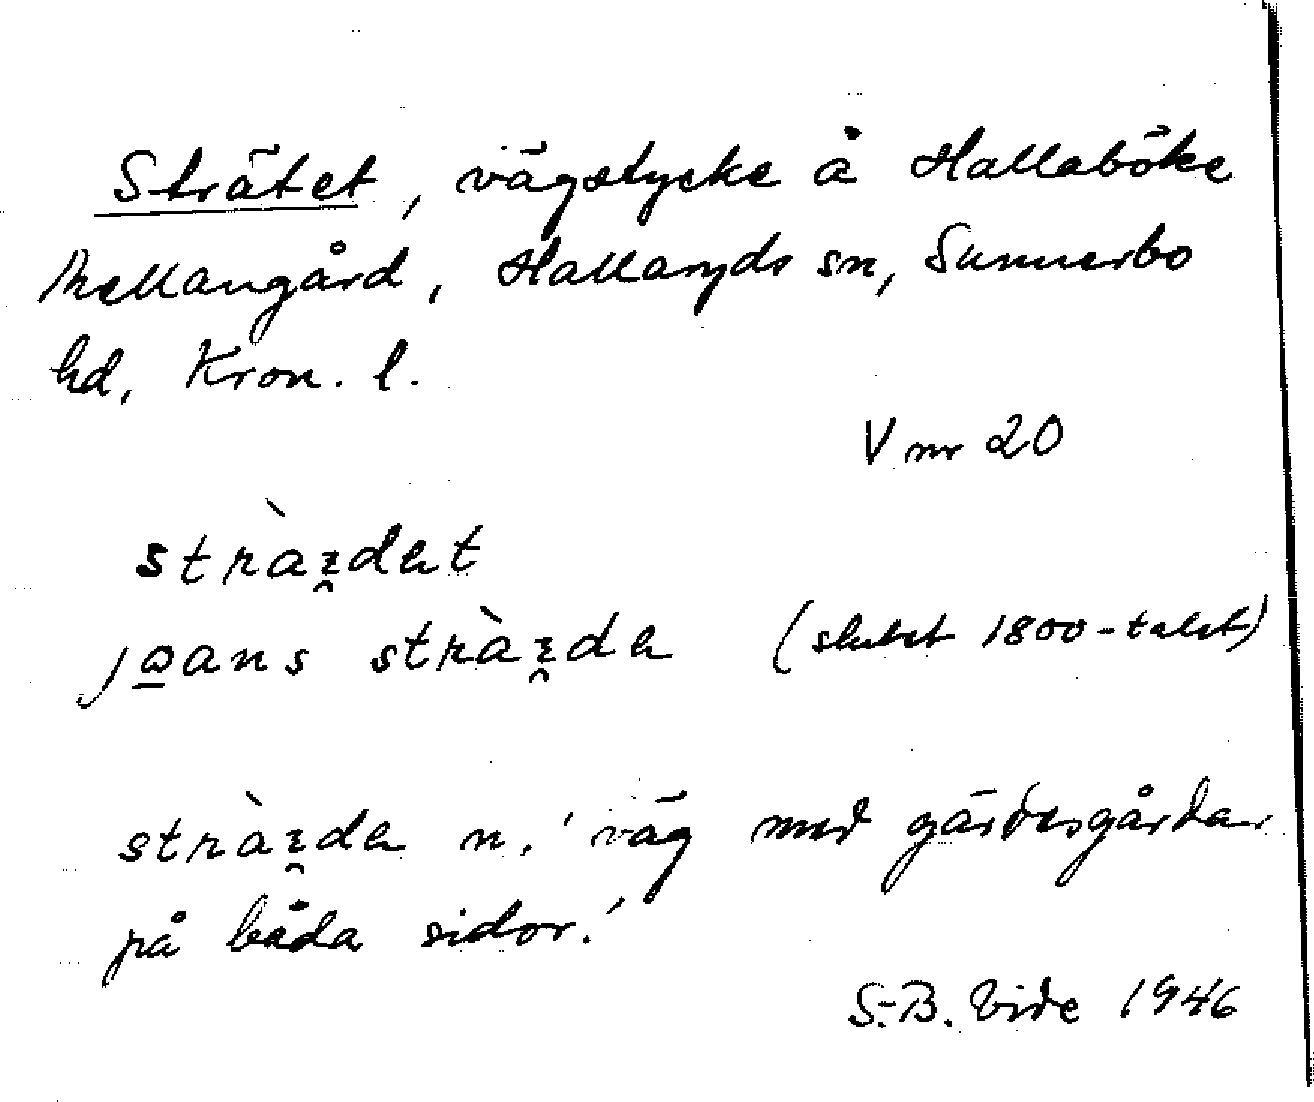 Strätet, vägstycke å Hallaböke
Mellangård, Hallaryds sn, Sunnerbo
hd, Kron. l.
V nr 20
(slutet 1800-talet)
n. 'väg med gärdesgårdar
på båda sidor.'
S.-B. Vide 1946